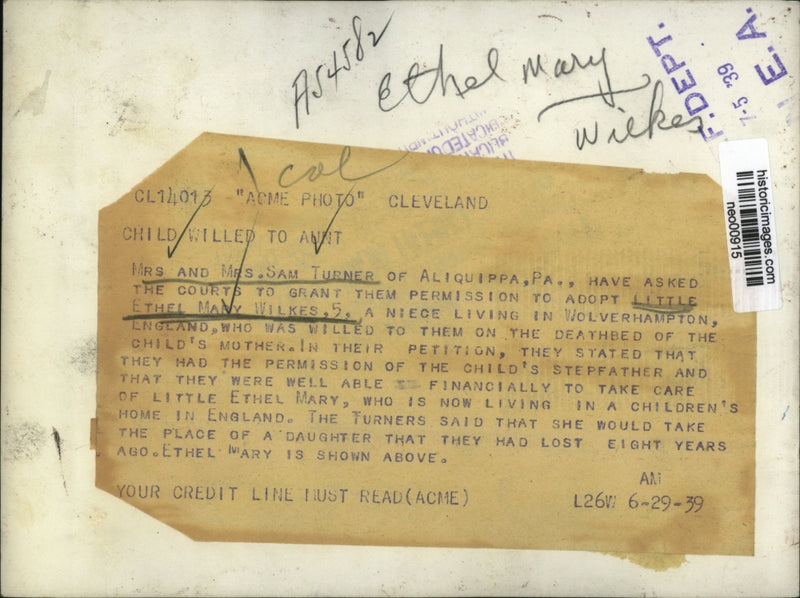 A54582
Ethel Mary
Wilkes
F. DEPT.
7-5 '39
N.E.A.
historicimages.com
neo00915
col
CL14013 "ACME PHOTO" CLEVELAND
CHILD WILLED TO AUNT
MRS AND MRS.SAM TURNER OF ALIQUIPPA,PA., HAVE ASKED
THE COURTS TO GRANT THEM PERMISSION TO ADOPT LITTLE
ETHEL MARY WILKES,5, A NIECE LIVING IN WOLVERHAMPTON,
ENGLAND,WHO WAS WILLED TO THEM ON THE DEATHBED OF THE
CHILD'S MOTHER.IN THEIR PETITION, THEY STATED THAT
THEY HAD THE PERMISSION OF THE CHILD'S STEPFATHER AND
THAT THEY WERE WELL ABLE FINANCIALLY TO TAKE CARE
OF LITTLE ETHEL MARY, WHO IS NOW LIVING IN A CHILDREN'S
HOME IN ENGLAND. THE TURNERS SAID THAT SHE WOULD TAKE
THE PLACE OF A DAUGHTER THAT THEY HAD LOST EIGHT YEARS
AGO.ETHEL MARY IS SHOWN ABOVE.
AM
YOUR CREDIT LINE MUST READ(ACME) L26W 6-29-39